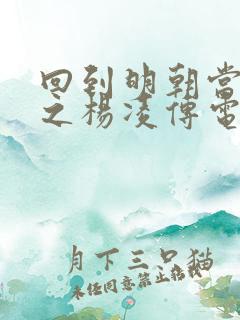 回到明朝当
之杨凌传电
月下三只猫
未任同意禁止转载